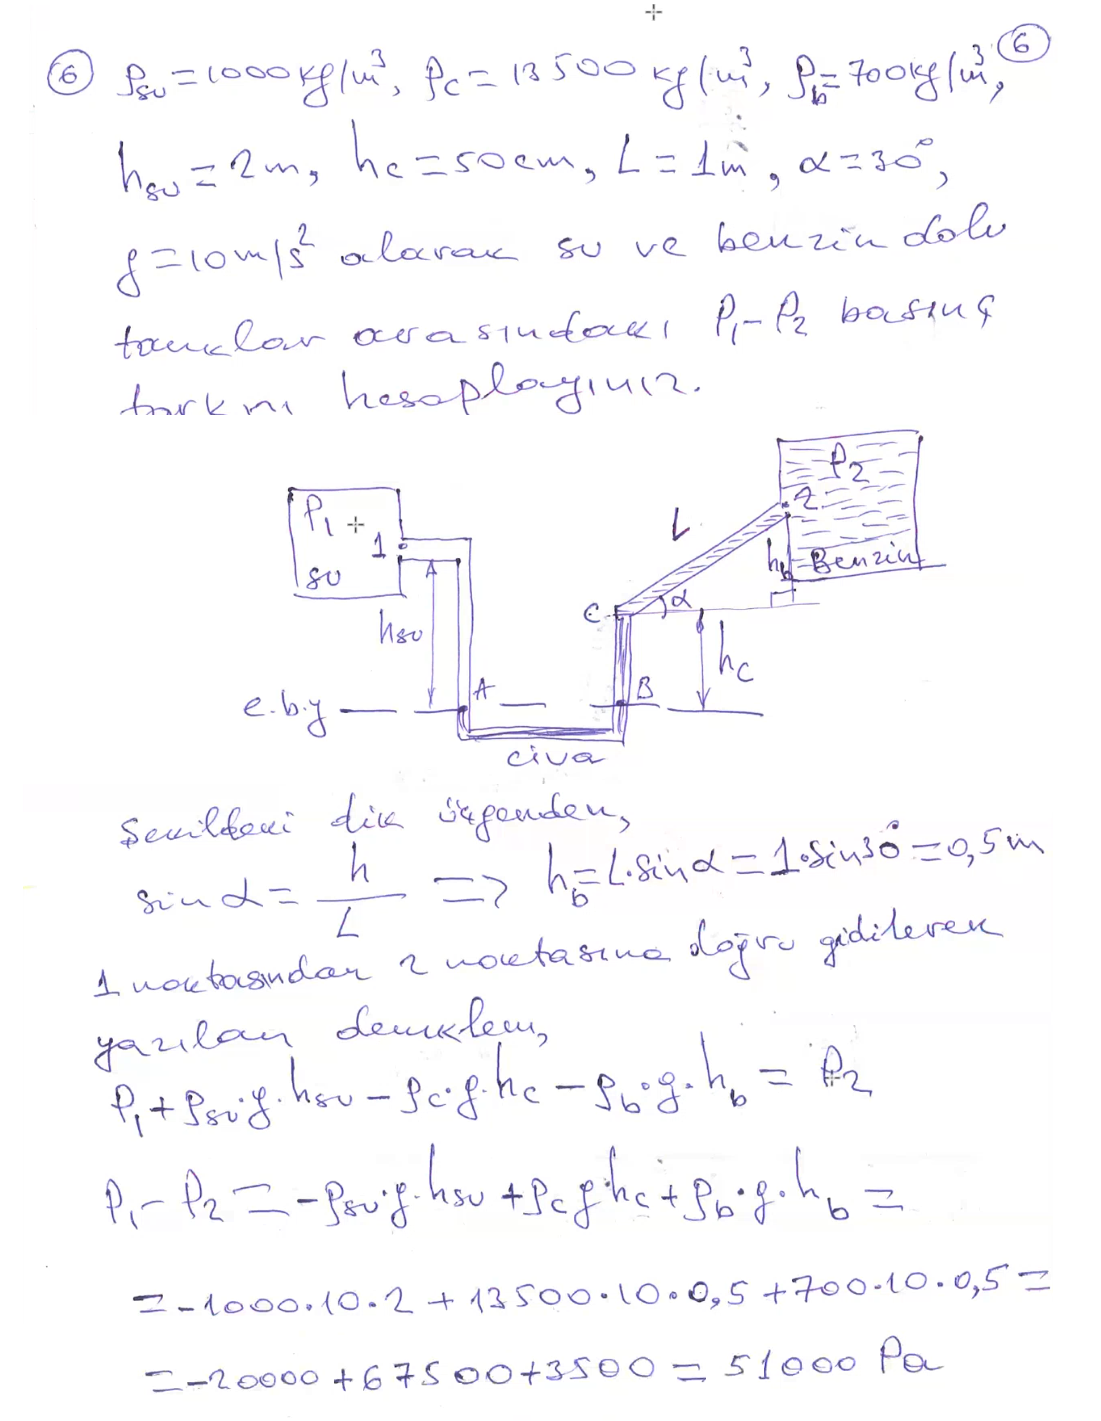 6 ρsu=1000kg/m³, ρc=13500kg/m³, ρb=700kg/m³, 6
hsu=2m, hc=50cm, L=1m, α=30°,
g=10m/s² alarak su ve benzin dolu
tanklar arasındakı P₁-P₂ basınç
farkını hesaplayınız.
P₁ +
1
su
hsu
e.b.y
A
civa
B
C
α
L
hc
P₂
2
hb
Benzin
Şekildeki dik üçgenden,
sin α = h/L => hb=L.sinα=1.sin30°=0,5m
1 noktasından 2 noktasına doğru gidilerek
yazılan denklem,
P₁+ρsu.g.hsu-ρc.g.hc-ρb.g.hb=P₂
P₁-P₂=-ρsu.g.hsu+ρc.g.hc+ρb.g.hb=
=-1000.10.2+13500.10.0,5+700.10.0,5=
=-20000+67500+3500=51000 Pa